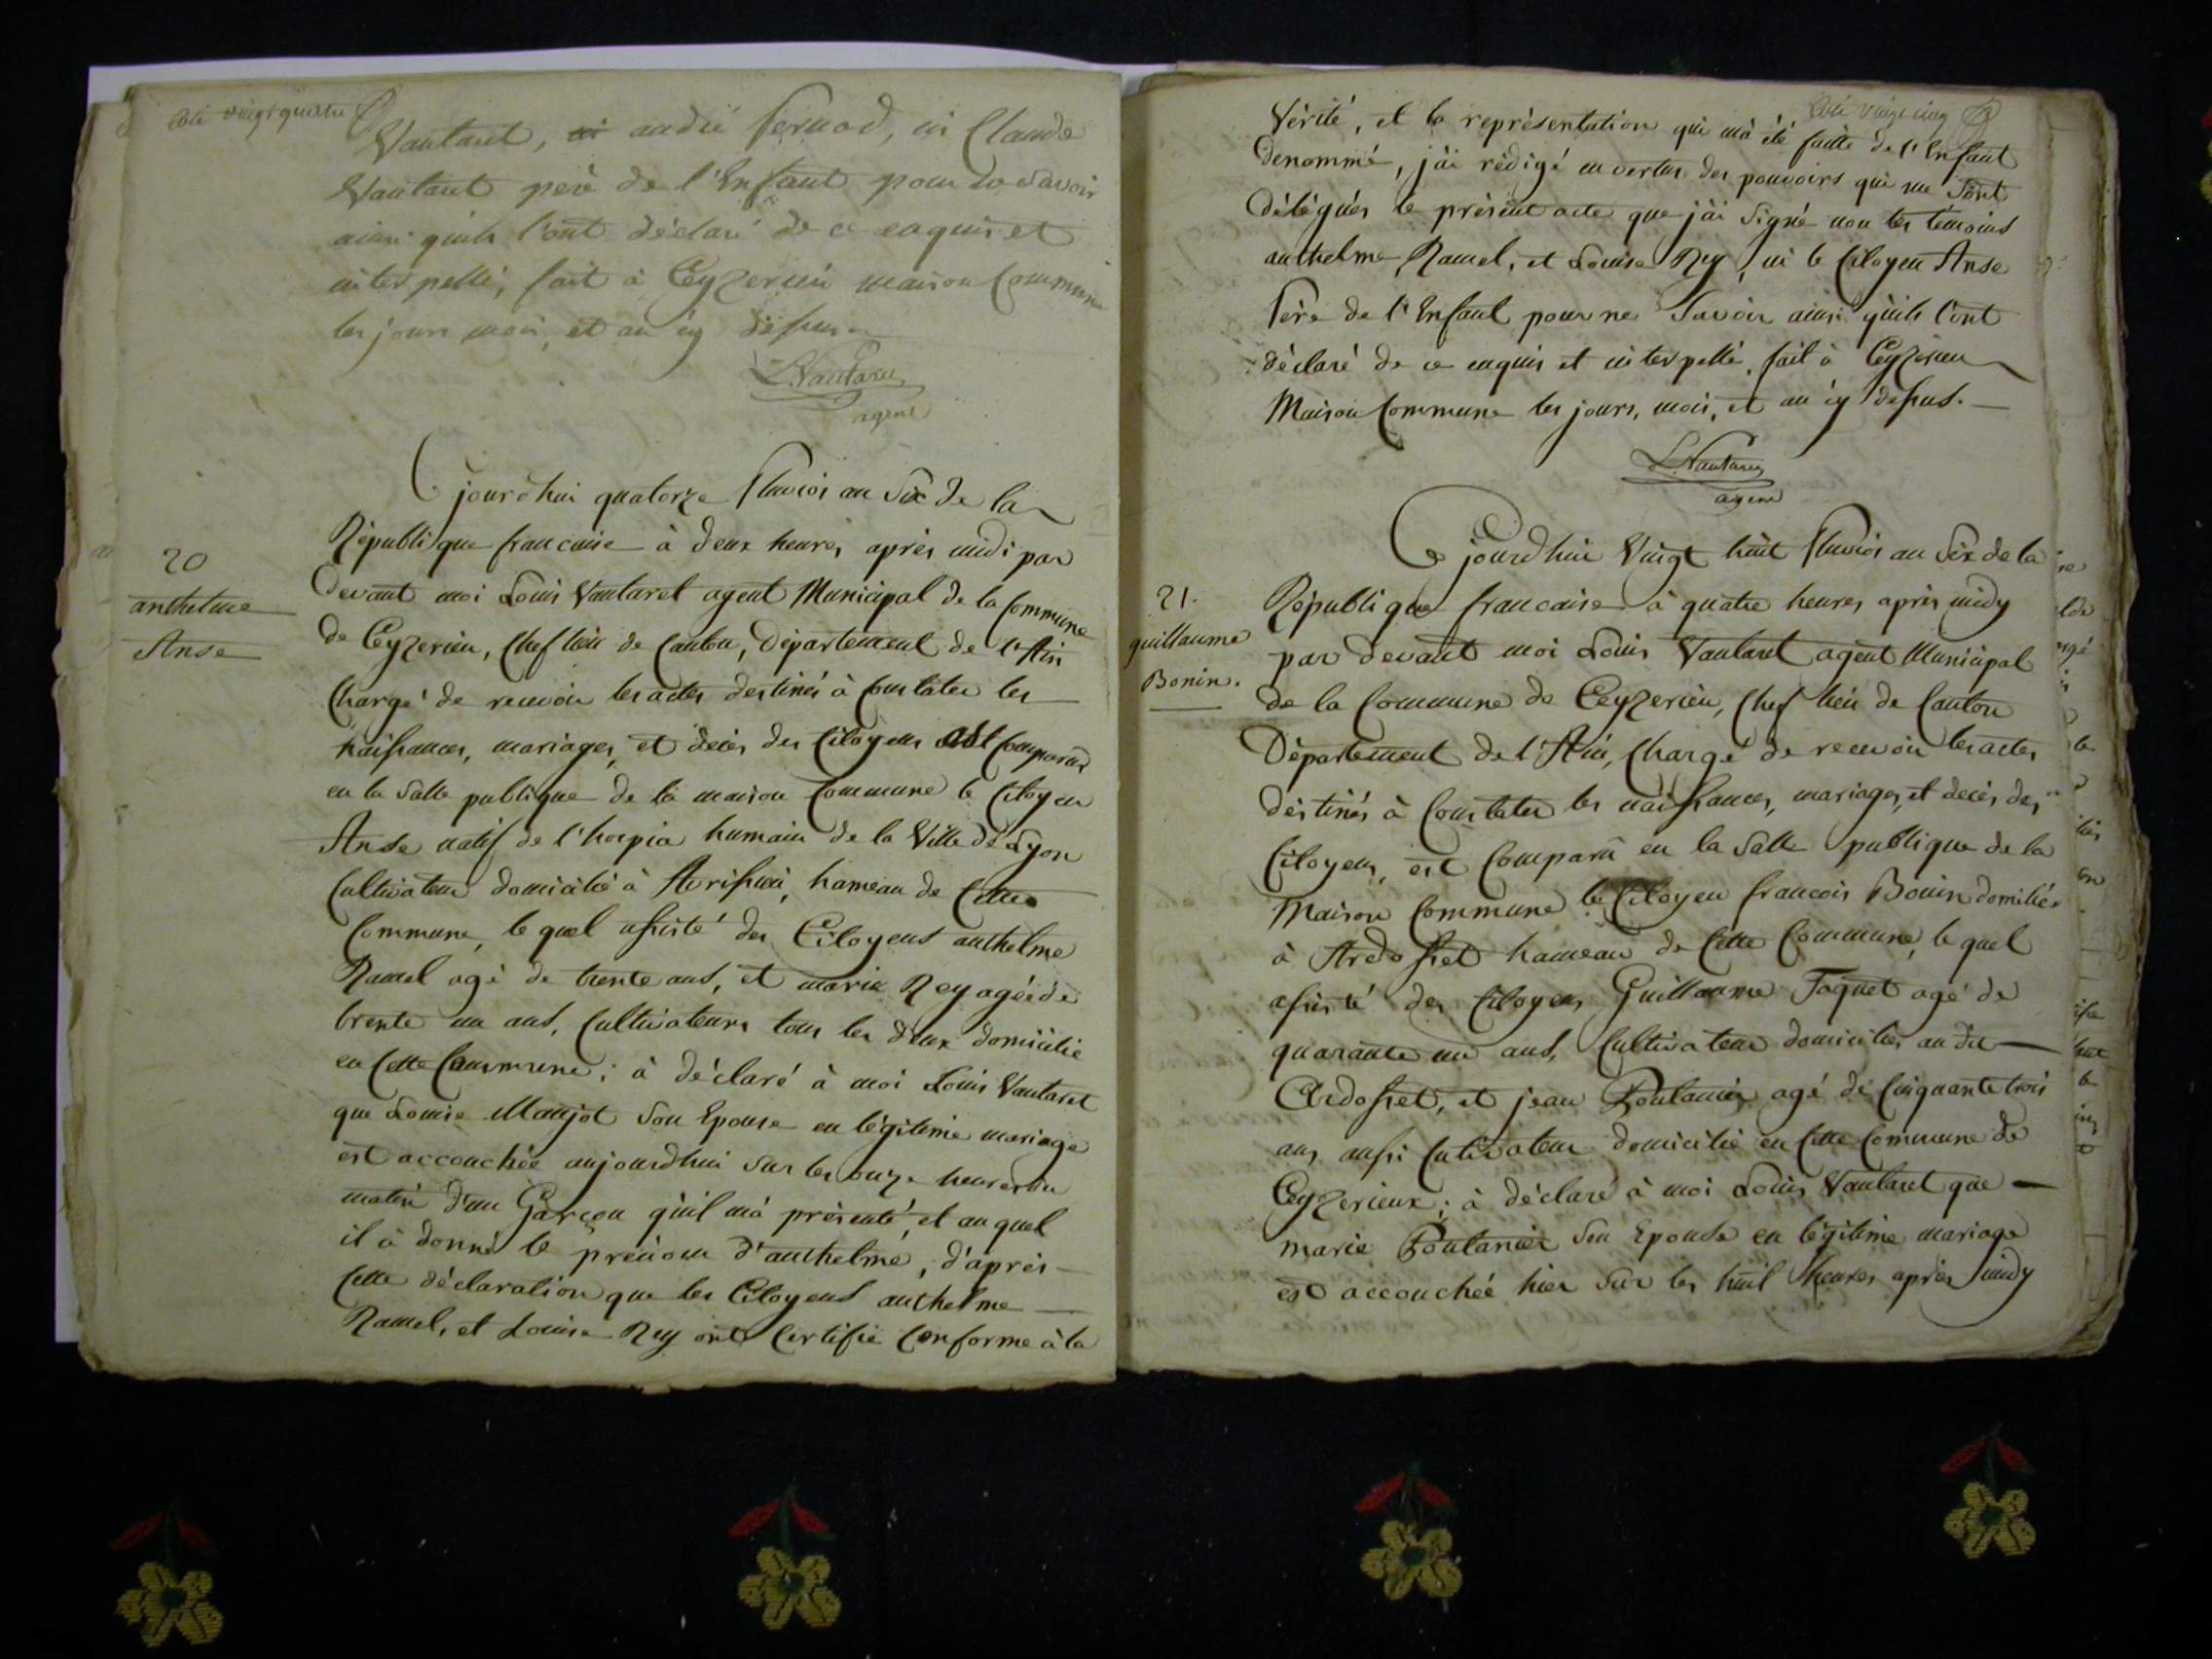 Coté vingt quatre
Vautaret, ni andré fernod, ni Claude
Vautaret peré de l'Enfant pour ne Savoir
ainsi quils l'ont déclaré de ce enquis et
interpellé, fait à Ceyzerieu maison Commune
les jours mois, et an cy dessus
L. Vautaret
agent
Ce jourd'hui quatorze Pluviôs an Six de la
République francaise à deux heures après midi par
20
anthelme
Anse
devant moi Louis Vautaret agent Municipal de la Commune
de Ceyzerieu, Chef lieu de Canton, Département de l'Ain
Chargé de recevoir les actes destinés à Constater les
naissances, mariages, et décès des Citoyens est Comparu
en la Salle publique de la maison Commune le Citoyen
Anse natif de l'hospice humain de la Ville de Lyon
Cultivateur domicilié à Avrissieu, hameau de Cette
Commune, le quel assisté des Citoyens anthelme
Ramel agé de trente ans, et marie Rey agée de
trente un ans, Cultivateurs tous les deux domicilié
en Cette Commune; à déclaré à moi Louis Vautaret
que Louise Monjot Son Epouse en légitime mariage
est accouchée aujourdhui Sur les onze heures du
matin d'un Garçon quil m'a présenté, et auquel
il à donné le prénom d'anthelme, d'après
Cette déclaration que les Citoyens anthelme
Ramel, et Louise Rey ont Certifié Conforme à la
Coté vingt cinq
Vérité, et la représentation qui m'a été faite de l'Enfant
Denommé, j'ai rédigé en vertus des pouvoirs qui me Sont
Délégués le présent acte que j'ai Signé non les témoins
anthelme Ramel, et Louise Rey, ni le Citoyen Anse
Père de l'Enfant pour ne Savoir ainsi quils l'ont
déclaré de ce enquis et interpellé, fait à Ceyzerieu
Maison Commune les jours, mois, et an cy dessus.
L. Vautaret
agent
Ce jourdhui Vingt huit Pluviôs an Six de la
21.
guillaume
Bonin.
République francaise à quatre heures après midy
par devant moi Louis Vautaret agent Municipal
de la Commune de Ceyzerieu, Chef lieu de Canton
Département de l'Ain, Chargé de recevoir les actes
destinés à Constater les naissances, mariages, et decès des
Citoyens, est Comparu en la Salle publique de la
Maison Commune le Citoyen francois Bonin domilié
à Ardosset hameau de Cette Commune, le quel
assisté des Citoyens Guillaume Jaquet agé de
quarante un ans, Cultivateur domicilié, au dit
Ardosset, et jean Poulanier agé de Cinquante trois
ans aussi Cultivateur domicilié en Cette Commune de
Ceyzerieux; à déclaré à moi Louis Vautaret que
marie Poulanier Son Epouse en légitime mariage
est accouchée hier Sur les huit heures après midy